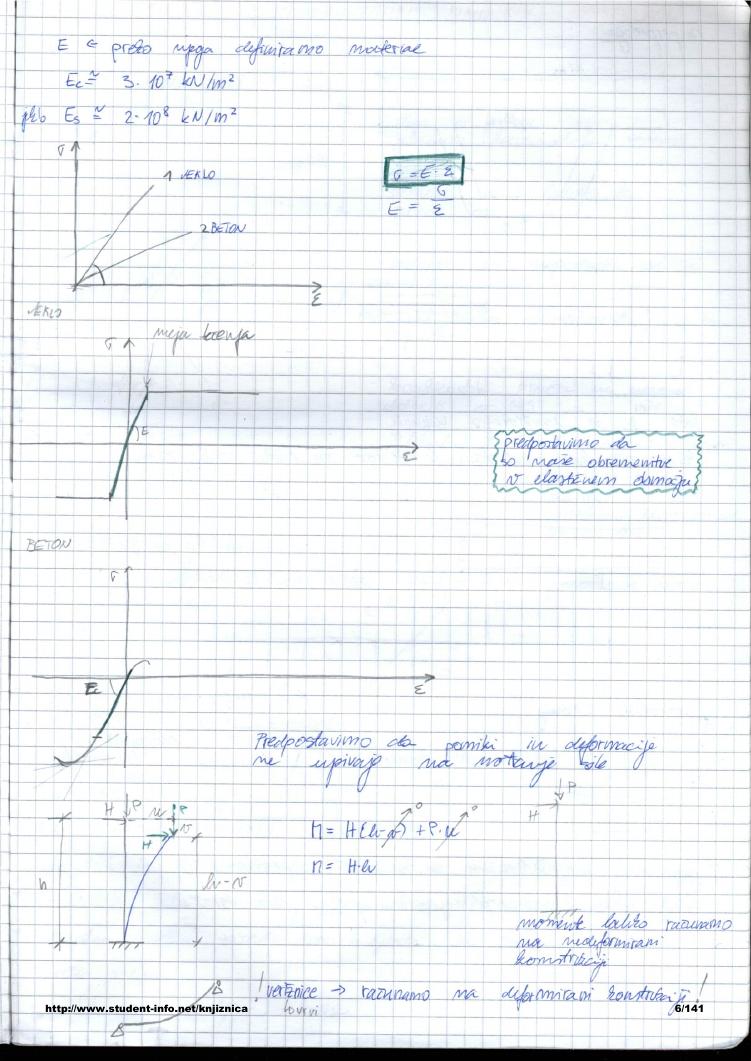 E ← preko njega definiramo material
Ec ≅ 3·10⁷ kN/m²
Es ≅ 2·10⁸ kN/m²
σ
1 JEKLO
2 BETON
ε
σ = E·ε
E = σ/ε
JEKLO
σ
meja tečenja
E
ε
predpostavimo da
so naše obremenitve
v elastičnem območju
BETON
σ
Ec
ε
Predpostavimo da pomiki in deformacije
ne vplivajo na notranje sile
H P u P
H v
h
h-v
M = H(h-v)→0 + P·u→0
M = H·h
P
H
momente lahko računamo
na nedeformirani
konstrukciji
! verižnice → računamo na deformirani konstrukciji!
http://www.student-info.net/knjiznica
6/141